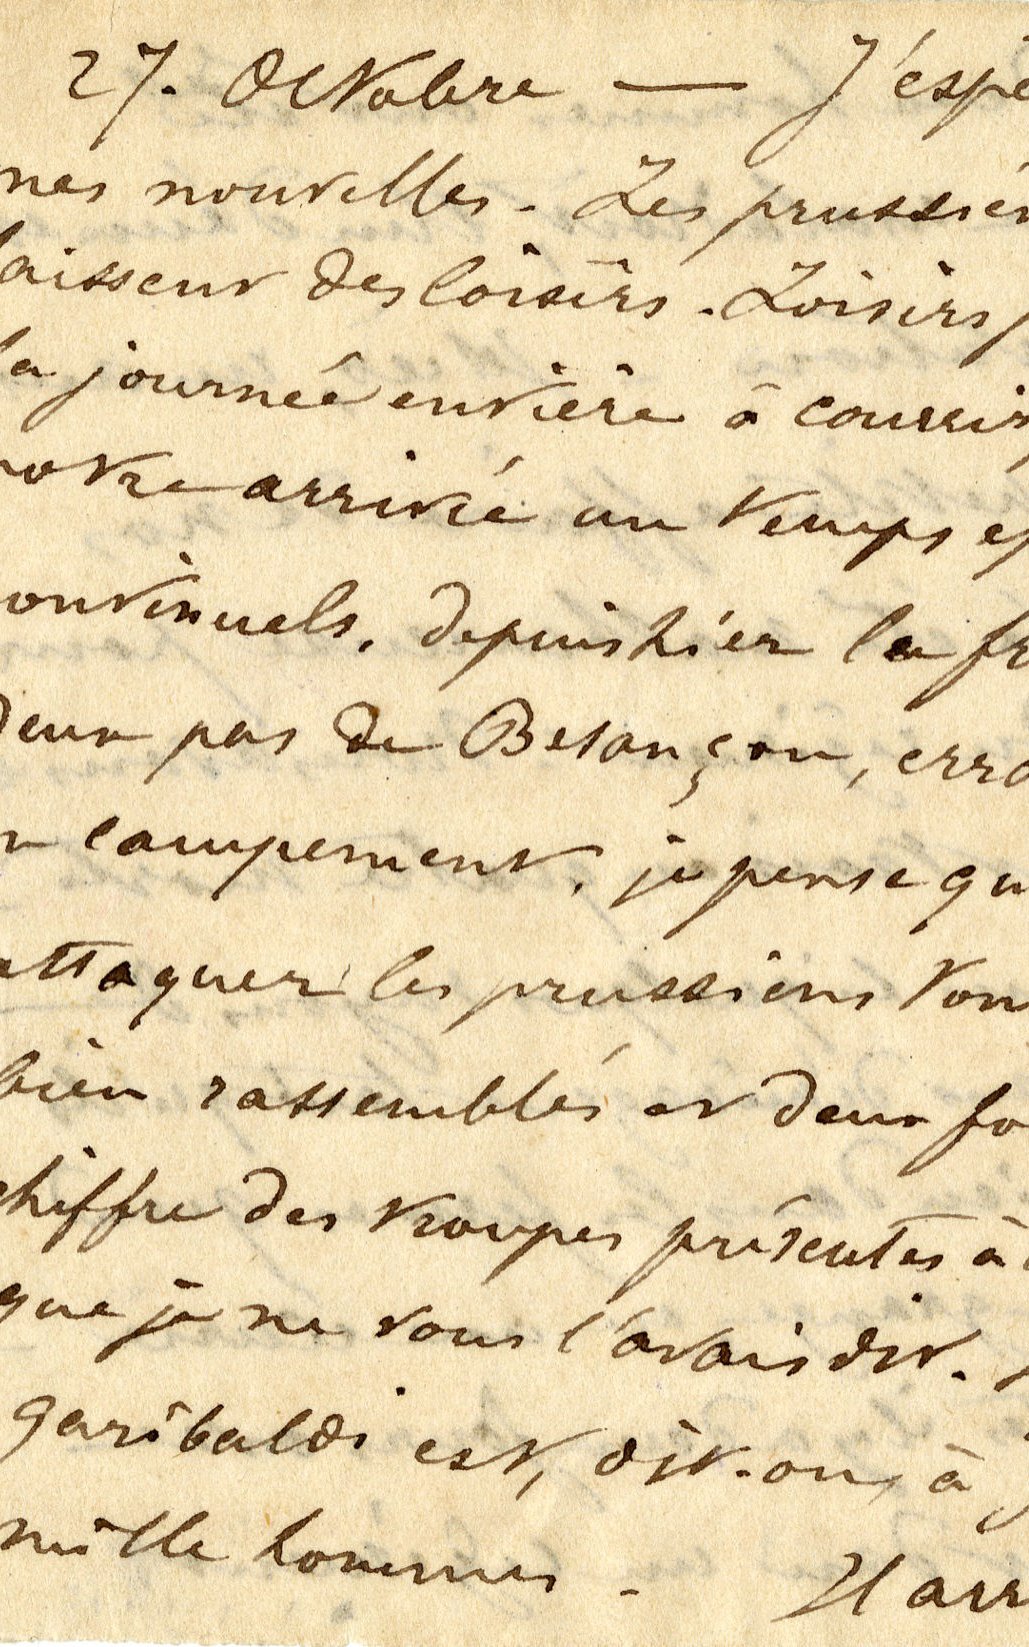 27. Octobre — J'espè
mes nouvelles. Les prussien
laissent des loisirs. Loisirs
la journée entière à courir
notre arrivée un temps
continuels. depuis hier la fr
deux pas de Besançon, erra
campement. je pense qu
attaquer les prussiens
bien rassemblés et deux fo
chiffre des troupes présentes à
que je ne vous l'avais dit.
garibaldi est, dit-on, à
mille hommes. Il arr